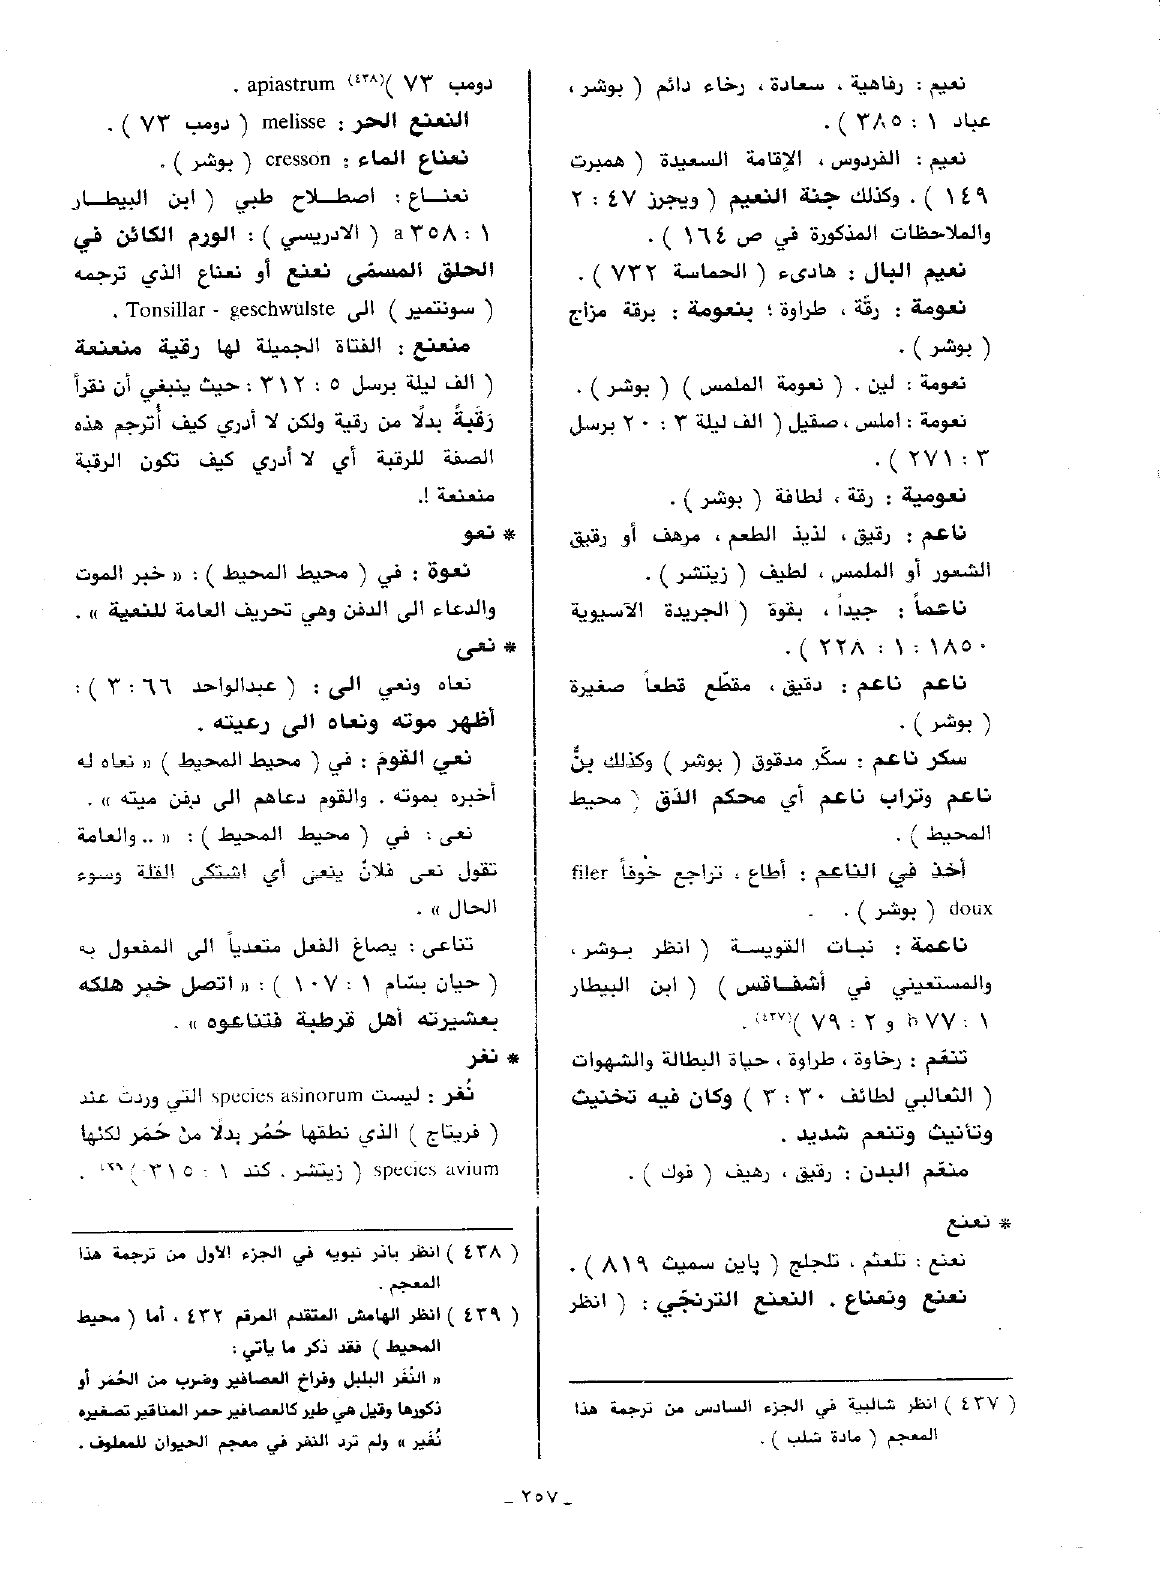 نعيم : رفاهية ، سعادة ، رخاء دائم ( بوشر ،
عباد ١ : ٣٨٥ ) .
نعيم : الفردوس ، الإقامة السعيدة ( همبرت
١٤٩ ) . وكذلك جنة النعيم ( ويجرز ٤٧ : ٢
والملاحظات المذكورة في ص ١٦٤ ) .
نعيم البال : هادىء ( الحماسة ٧٣٢ ) .
نعومة : رقّة ، طراوة ؛ بنعومة : برقة مزاج
( بوشر ) .
نعومة : لين . ( نعومة الملمس ) ( بوشر ) .
نعومة : املس ، صقيل ( الف ليلة ٣ : ٢٠ برسل
٣ : ٢٧١ ) .
نعومية : رقة ، لطافة ( بوشر ) .
ناعم : رقيق ، لذيذ الطعم ، مرهف أو رقيق
الشعور أو الملمس ، لطيف ( زيتشر ) .
ناعماً : جيداً ، بقوة ( الجريدة الآسيوية
١٨٥٠ : ١ : ٢٢٨ ) .
ناعم ناعم : دقيق ، مقطّع قطعاً صغيرة
( بوشر ) .
سكر ناعم : سكّر مدقوق ( بوشر ) وكذلك بنٌّ
ناعم وتراب ناعم أي محكم الدّق ( محيط
المحيط ) .
أخذ في الناعم : أطاع ، تراجع خوفاً filer
doux ( بوشر ) .
ناعمة : نبات القويسة ( انظر بوشر ،
والمستعيني في أشفاقس ) ( ابن البيطار
١ : ٧٧ b و ٢ : ٧٩ )(٤٣٧) .
تنعّم : رخاوة ، طراوة ، حياة البطالة والشهوات
( الثعالبي لطائف ٣٠ : ٣ ) وكان فيه تخنيث
وتأنيث وتنعم شديد .
منعّم البدن : رقيق ، رهيف ( فوك ) .
* نعنع
نعنع : تلعثم ، تلجلج ( پاين سميث ٨١٩ ) .
نعنع ونعناع . النعنع الترنجّي : ( انظر
( ٤٣٧ ) انظر شالبية في الجزء السادس من ترجمة هذا
المعجم ( مادة شلب ) .
دومب ٧٣ )(٤٣٨) apiastrum .
النعنع الحر : melisse ( دومب ٧٣ ) .
نعناع الماء : cresson ( بوشر ) .
نعناع : اصطلاح طبي ( ابن البيطار
١ : ٣٥٨ a ( الادريسي ) : الورم الكائن في
الحلق المسمّى نعنع أو نعناع الذي ترجمه
( سونتمير ) الى Tonsillar - geschwülste .
منعنع : الفتاة الجميلة لها رقبة منعنعة
( الف ليلة برسل ٥ : ٣١٢ : حيث ينبغي أن نقرأ
رَقَبةً بدلًا من رقية ولكن لا أدري كيف أُترجم هذه
الصفة للرقبة أي لا أدري كيف تكون الرقبة
منعنعة !.
* نعو
نعوة : في ( محيط المحيط ) : « خبر الموت
والدعاء الى الدفن وهي تحريف العامة للنعية » .
* نعى
نعاه ونعي الى : ( عبدالواحد ٦٦ : ٣ ) :
أظهر موته ونعاه الى رعيته .
نعي القوم : في ( محيط المحيط ) « نعاه له
أخبره بموته . والقوم دعاهم الى دفن ميته » .
نعى : في ( محيط المحيط ) : « .. والعامة
تقول نعى فلانٌ ينعى أي اشتكى القلة وسوء
الحال » .
تناعى : يصاغ الفعل متعدياً الى المفعول به
( حيان بسّام ١ : ١٠٧ ) : « اتصل خبر هلكه
بعشيرته أهل قرطبة فتناعوه » .
* نغر
نُغر : ليست species asinorum التي وردت عند
( فريتاج ) الذي نطقها حُمُر بدلًا من حُمَر لكنها
species avium ( زيتشر . كند ١ : ٣١٥ ) .
( ٤٣٨ ) انظر باذر نبويه في الجزء الأول من ترجمة هذا
المعجم .
( ٤٣٩ ) انظر الهامش المتقدم المرقم ٤٣٢ ، أما ( محيط
المحيط ) فقد ذكر ما يأتي :
« النُغَر البلبل وفراخ العصافير وضرب من الحُمَر أو
ذكورها وقيل هي طير كالعصافير حمر المناقير تصغيره
نُغَير » ولم ترد النغر في معجم الحيوان للمعلوف .
_ ٢٥٧ _